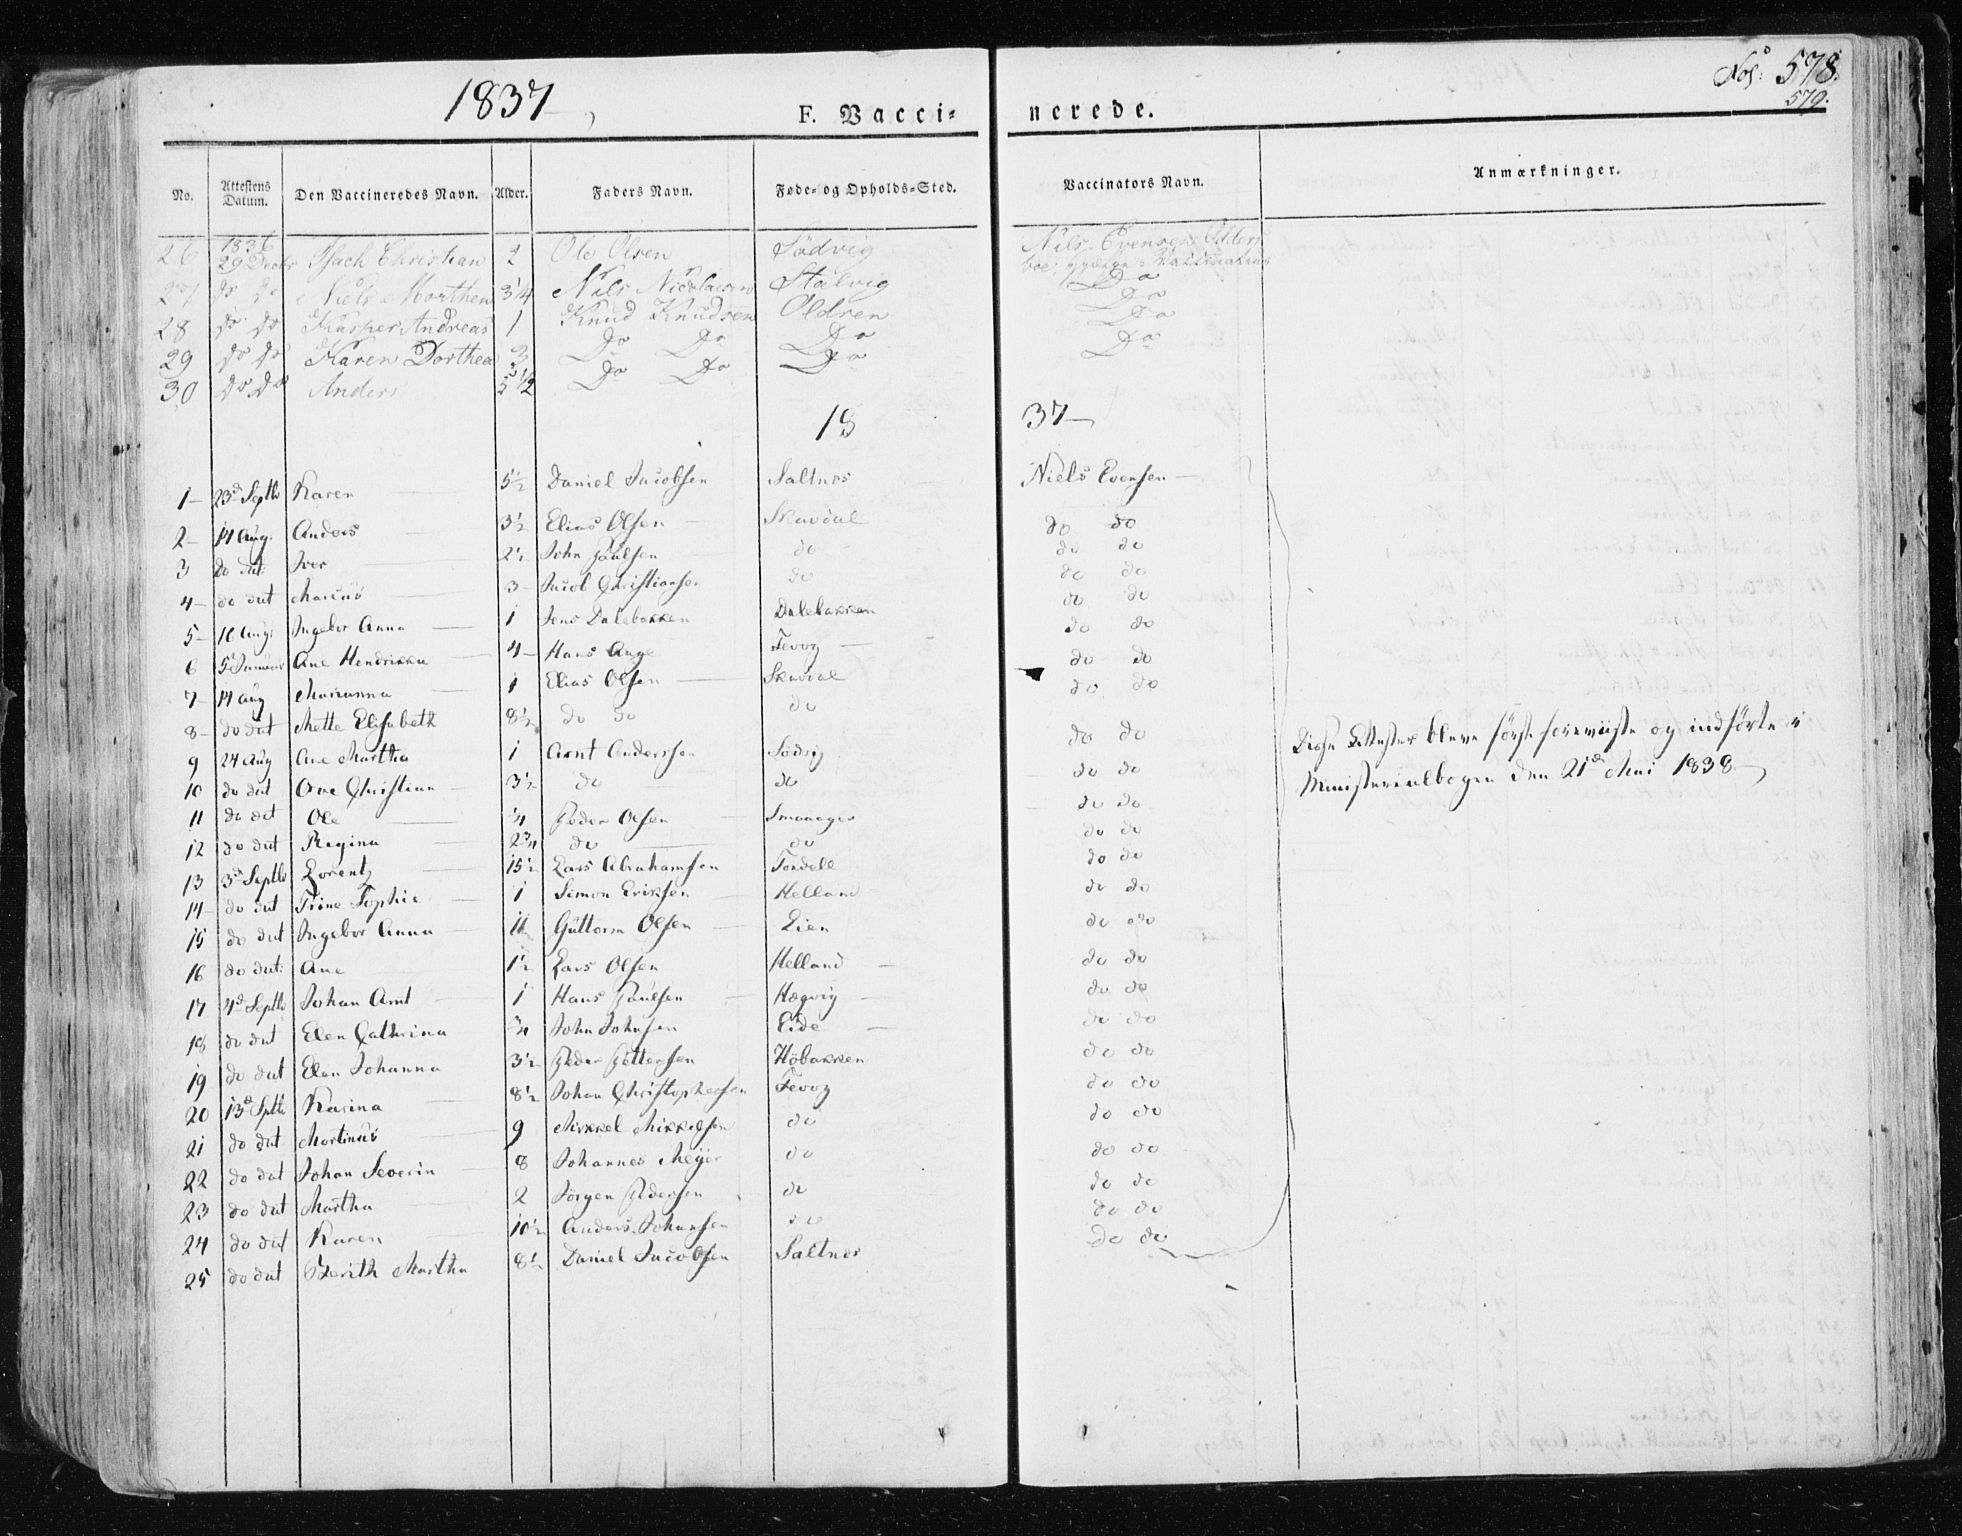 1837
F. Vacci- nerede.
Fol: 578.
579.
No. Attestens Datum. Den Vaccineredes Navn. Alder. Faders Navn. Føde- og Opholds-Sted. Vaccinators Navn. Anmærkninger.
1836
26 29 Decbr Isach Christian 2 Ole Olsen Södvig Nils Evensen Olderen
27 do do Niels Morthen 3/4 Nils Nicolaisen Stalvig Do
28 do do Kasper Andreas 1 Knud Knudsen Oldren Do
29 do do Karen Dorthea 3 Do Do Do Do
30 do do Anders 5 1/2 Do Do Do Do
18 37
1 23d Septbr Karen 5½ Daniel Jacobsen Saltnes Niels Evensen
2 14 Aug. Anders 3½ Elias Olsen Skavdal do do
3 do dat: Iver 2½ John Paulsen do do do
4 do dat Marcus 3 Jacob Christiansen do do do
5 16 Aug: Ingebor Anna 1 Jens Dalebakken Dalebakken do do
6 5 Januar Ane Hendrikka 4 Hans Aage Fevog do do
7 14 Aug Marianna 1 Elias Olsen Skavdal do do
8 do dat Mette Elisabeth 8½ do do do do do
9 24 Aug Ane Martha 1 Arnt Anderssen Södvig do do
10 do dat Ove Christian 3½ do do do do
11 do dat Ole ¼ Peder Olsen Smaaage do do
12 do dat Regina 2¾ do do do do
13 3d Septbr Lorentz 15½ Lars Abrahamsen Tondell do do
14 do dat Trine Sophie 1 Simon Eriksen Helland do do
15 do dat Ingebor Anna 11 Guttorm Olsen Lien do do
16 do dat: Ane 1½ Lars Olsen Helland do do
17 4d Septbr Johan Arnt 1 Hans Paulsen Hegvig do do
18 do dat Elen Cathrina ¾ John Johnsen Eide do do
19 do dat Elen Johanna 3½ Peder Pettersen Höbakken do do
20 13d Sptbr Karina 8½ Johan Christophersen Fevog do do
21 do dat Martinus 9 Mikkel Mikkelsen do do do
22 do dat Johan Severin 8 Johannes Meyer do do do
23 do dat Martha 2 Jörgen Pedersen do do do
24 do dat Karen 10½ Anders Johansen do do do
25 do dat Berith Martha 8½ Daniel Jacobsen Saltnes do do
Disse Attester bleve först foreviiste og indförte i
Ministerialbogen den 21de Mai 1838